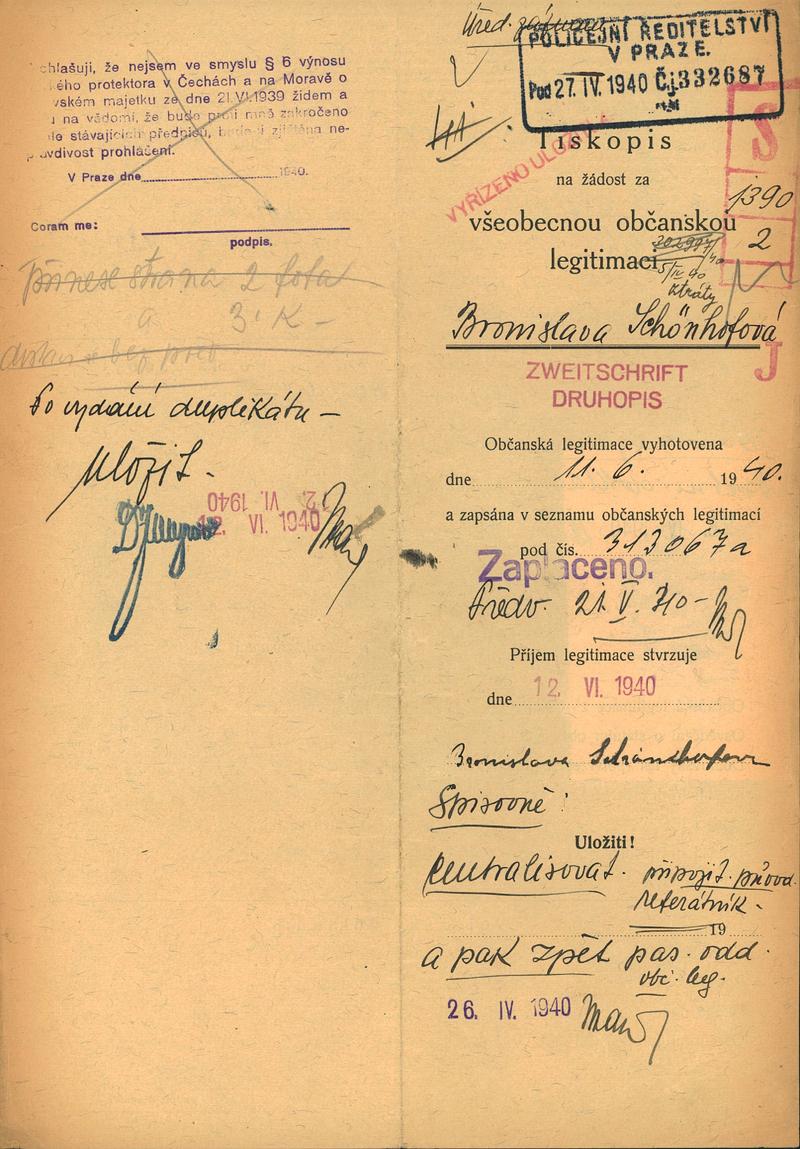 chlašuji, že nejsem ve smyslu § 6 výnosu
ého protektora v Čechách a na Moravě o
vském majetku ze dne 21.VI.1939 židem a
u na vědomí, že bude proti mně zakročeno
le stávajících předpisů, bude-li zjištěna ne-
pravdivost prohlášení.
V Praze dne 1940.
Coram me:
podpis.
přinese strana 2 fota
a 3 K —
Po vydání duplikátu —
uložit.
2. VI. 1940
12. VI. 1940
Úřed.
POLICEJNÍ ŘEDITELSTVÍ
V PRAZE.
Pod 27. IV. 1940 Čj. 332687
S
Tiskopis
VYŘÍZENO
na žádost za
1390
všeobecnou občanskou
2
legitimaci
5/IV 40
ztráty
Bronislava Schönhofová
J
ZWEITSCHRIFT
DRUHOPIS
Občanská legitimace vyhotovena
dne 11. 6. 1940.
a zapsána v seznamu občanských legitimací
pod čís. 313067a
Zaplaceno.
21. V. 40 —
Příjem legitimace stvrzuje
dne 12. VI. 1940
Bronislava
Spisovně:
Uložiti!
Centralisovat. připojit. průvod.
referátník.
19
a pak zpět pas. odd.
obč. leg.
26. IV. 1940